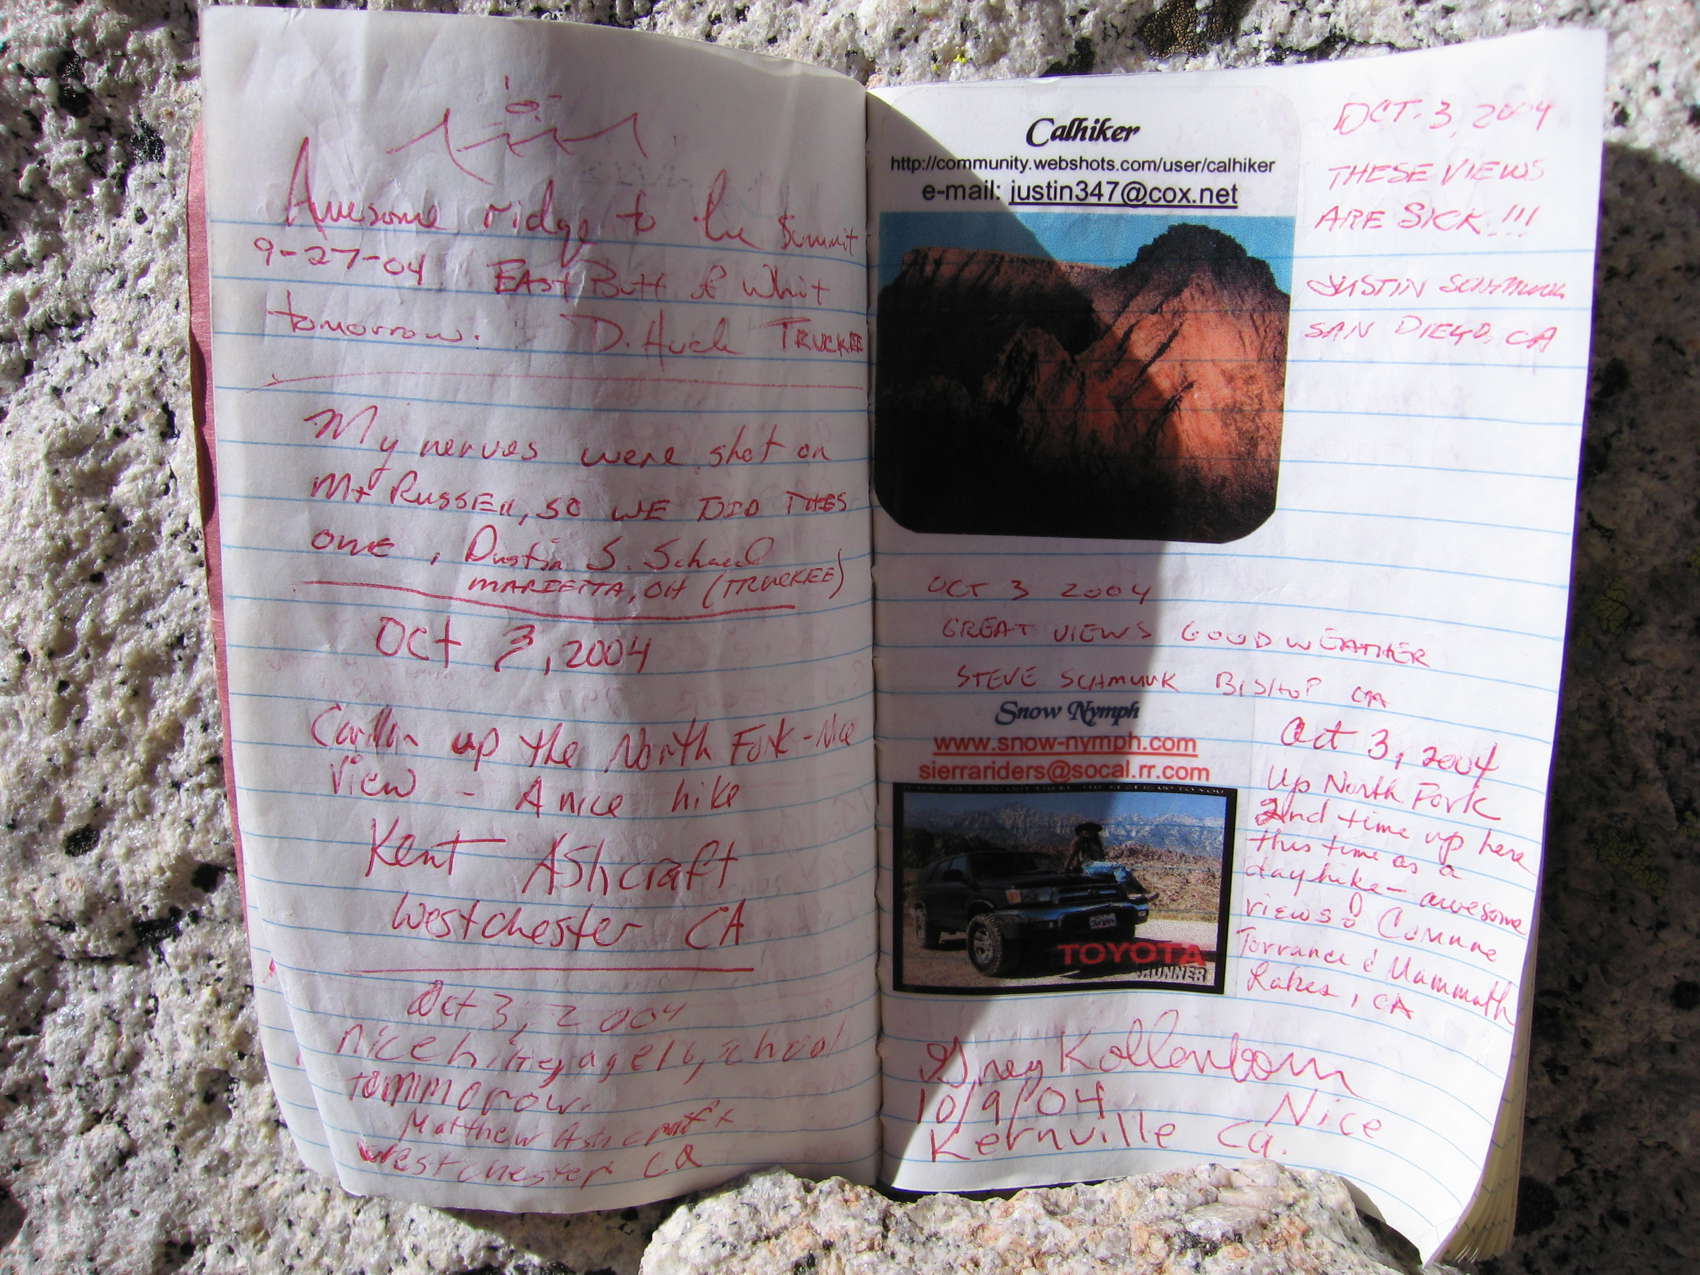 Awesome ridge to the Summit
9-27-04 EAst Butt of Whit
tomorrow. D. Huck TRUCKEE
My nerves were shot on
Mt RUSSEll, SO WE DID THIS
ONE, Dustin S.
MARIETTA, OH (TRUCKEE)
Oct 3, 2004
up the North Fork - Nice
View - A nice hike
Kent Ashcraft
Westchester CA
Oct 3, 2004
nice hike, age 16, school
tommorow.
Matthew Ashcraft
westchester ca
Calhiker
http://community.webshots.com/user/calhiker
e-mail: justin347@cox.net
OCT. 3, 2004
THESE VIEWS
ARE SICK!!!
JUSTIN SCHMUNK
SAN DIEGO, CA
OCT 3 2004
GREAT VIEWS GOOD WEATHER
STEVE SCHMUNK BISHOP CA
Snow Nymph
www.snow-nymph.com
sierrariders@socal.rr.com
TOYOTA
4RUNNER
Oct 3, 2004
Up North Fork
2nd time up here
this time as a
dayhike - awesome
views!
Torrance & Mammoth
Lakes, CA
Greg Kollenborn
10/9/04 Nice
Kernville Ca.